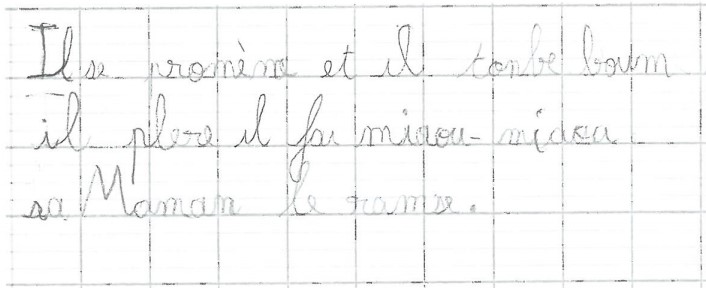 Il se promène et il tonbe boum
il plere il fai miaou-miaou
sa Maman le ramse.